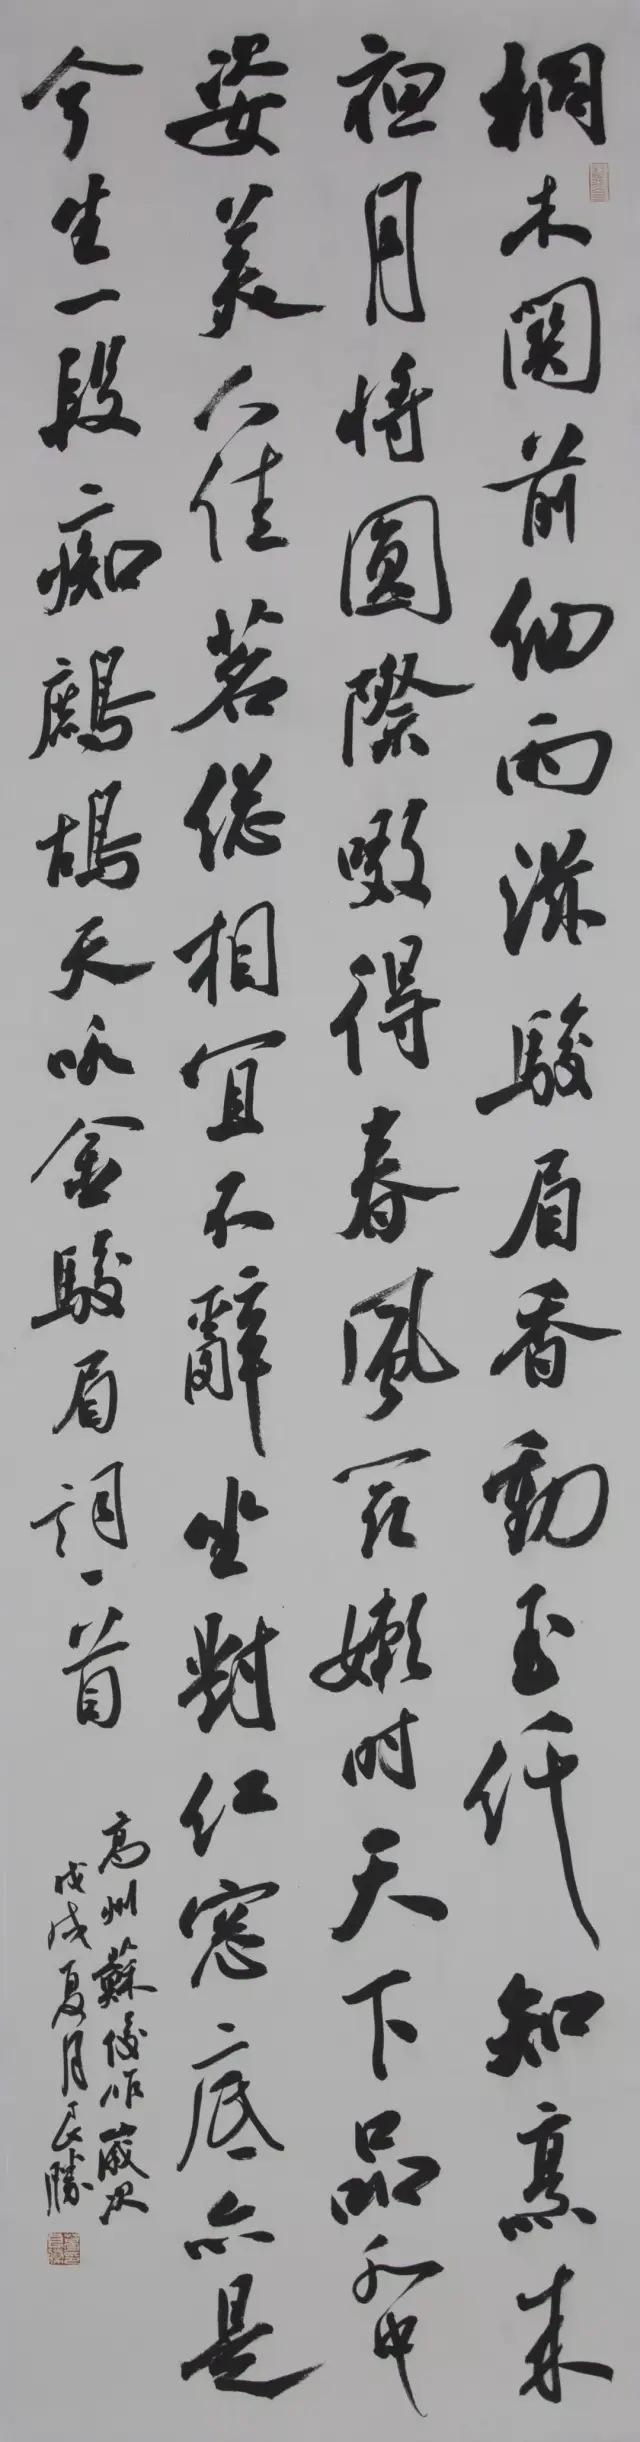 桐木關前細雨滋駿眉香動玉纤知烹來
月將圓際啜得春風冣嫩時天下品中
姿美人佳茗總相宜不辭坐對紅窓底亦是
今生一段痴鷓鴣天咏金駿眉詞一首
高州蘇俊作歲次
戊戌夏月良勝